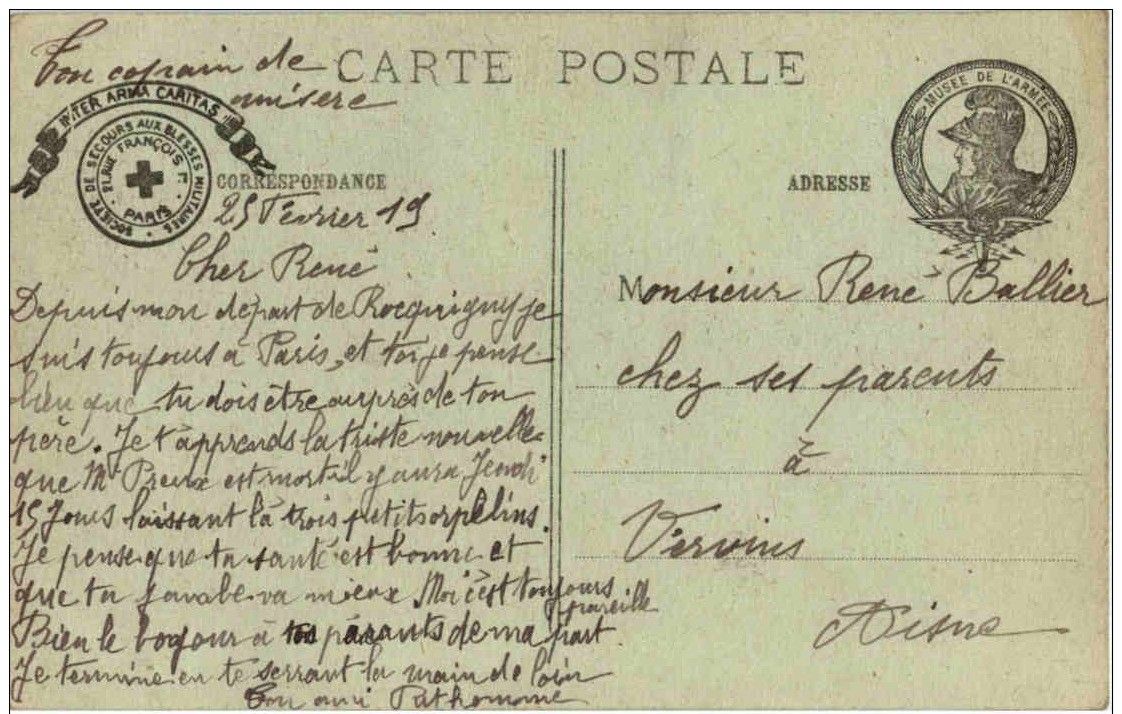 Ton copain de
misère
CARTE POSTALE
INTER ARMA CARITAS
SOCIÉTÉ DE SECOURS AUX BLESSÉS MILITAIRES
21 RUE FRANÇOIS Ier
PARIS
CORRESPONDANCE
25 Février 19
Cher René
Depuis mon départ de Rocquigny je
suis toujours à Paris, et toi je pense
bien que tu dois être auprès de ton
père. Je t'apprends la triste nouvelle
que Mr Preux est mort il y aura Jeudi
15 Jours laissant là trois petits orpélins.
Je pense que ta santé est bonne et
que ta va mieux Moi c'est toujours
pareille
Bien le bonjour à tes parants de ma part.
Je termine en te serrant la main de loin
Ton ami
ADRESSE
MUSÉE DE L'ARMÉE
Monsieur René Ballier
chez ses parents
à
Vervins
Aisne